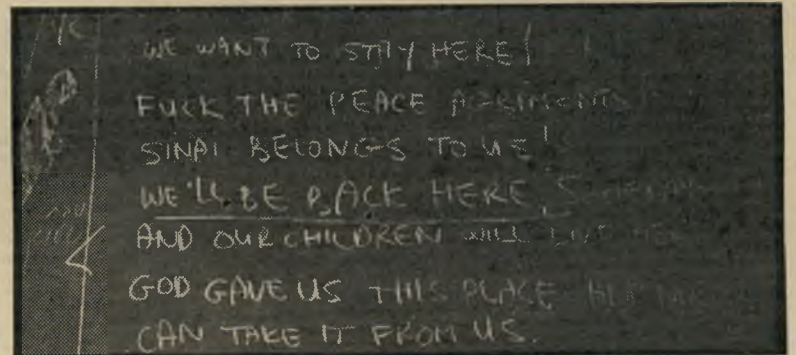 WE WANT TO STAY HERE!
FUCK THE PEACE
SINAI BELONGS TO US!
WE'LL BE BACK HERE,
AND OUR CHILDREN WILL LIVE HERE
GOD GAVE US THIS PLACE
CAN TAKE IT FROM US.